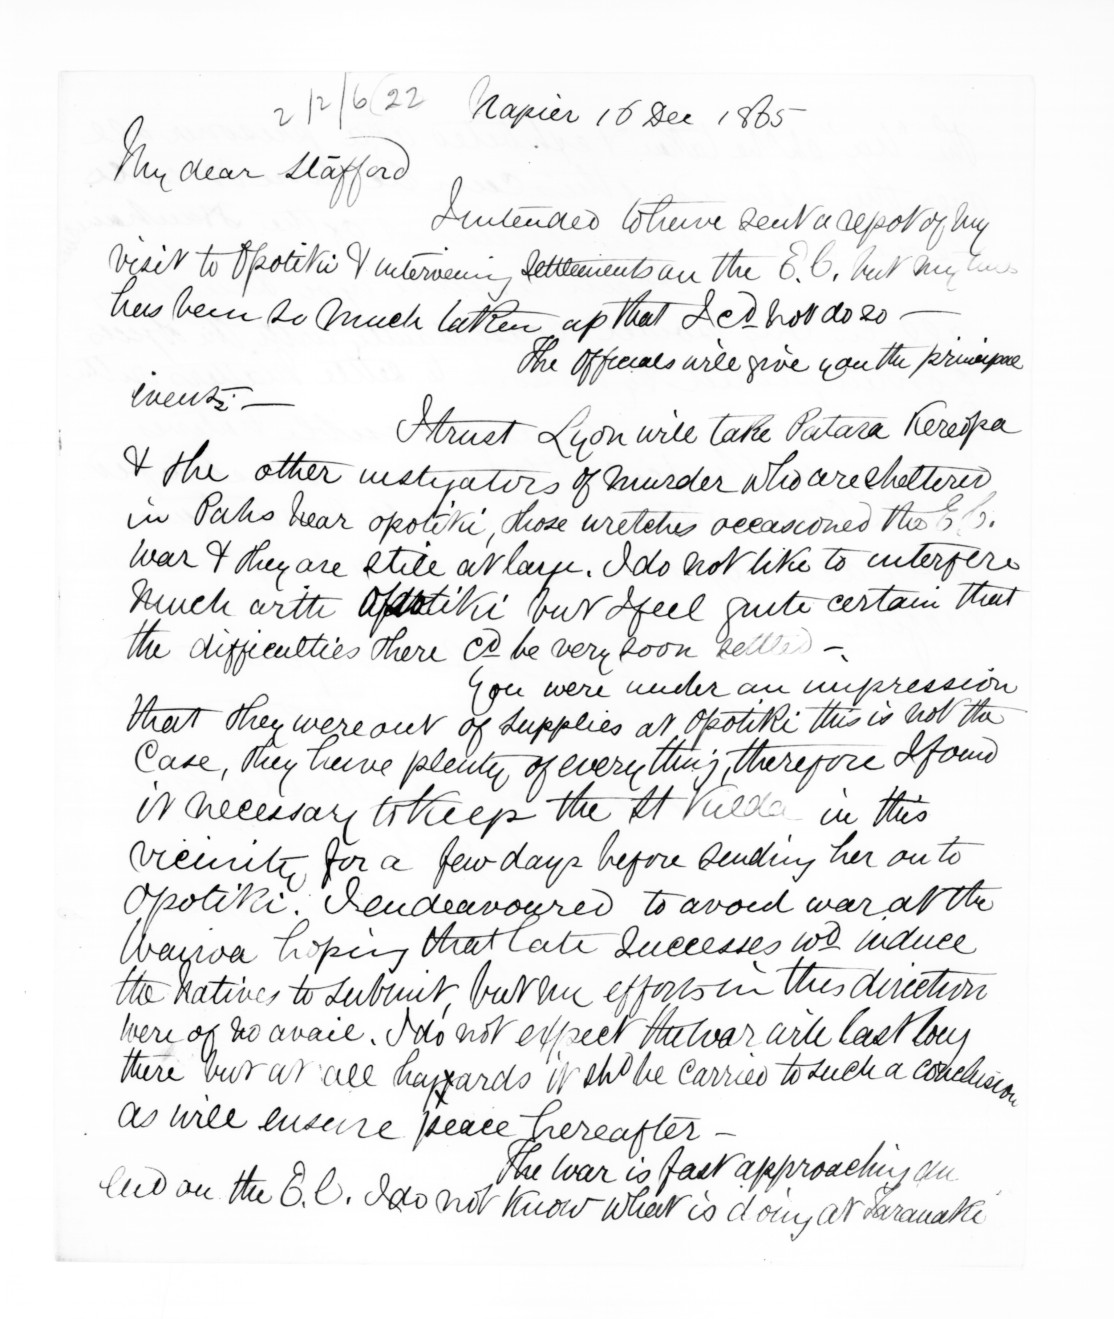 2/2/6(22 Napier 16 Dec 1865
My dear Stafford
I intended to have sent a repot of my
visit to Opotiki & intervening settlements on the E.C. but my time
has been so much taken up that I cd not do so —
The officials will give you the principal
events —
I trust Lyon will take Patara Kereopa
& the other instigators of murder who are sheltered
in Pahs near opotiki, those wretches occasioned the E.C.
war & they are still at large. I do not like to interfere
much with Opotiki but I feel quite certain that
the difficulties there cd be very soon settled —.
You were under an impression
that they were out of supplies at Opotiki this is not the
case, they have plenty of everything, therefore I found
it necessary to keep the St Kilda in this
vicinity for a few days before sending her on to
Opotiki. I endeavoured to avoid war at the
Wairoa hoping that late successes wd induce
the Natives to submit, but my efforts in this direction
were of no avail. I do not expect the war will last long
there but at all hazards it shd be carried to such a conclusion
as will ensure peace hereafter —
The war is fast approaching an
end on the E.C. I do not know what is doing at Taranaki